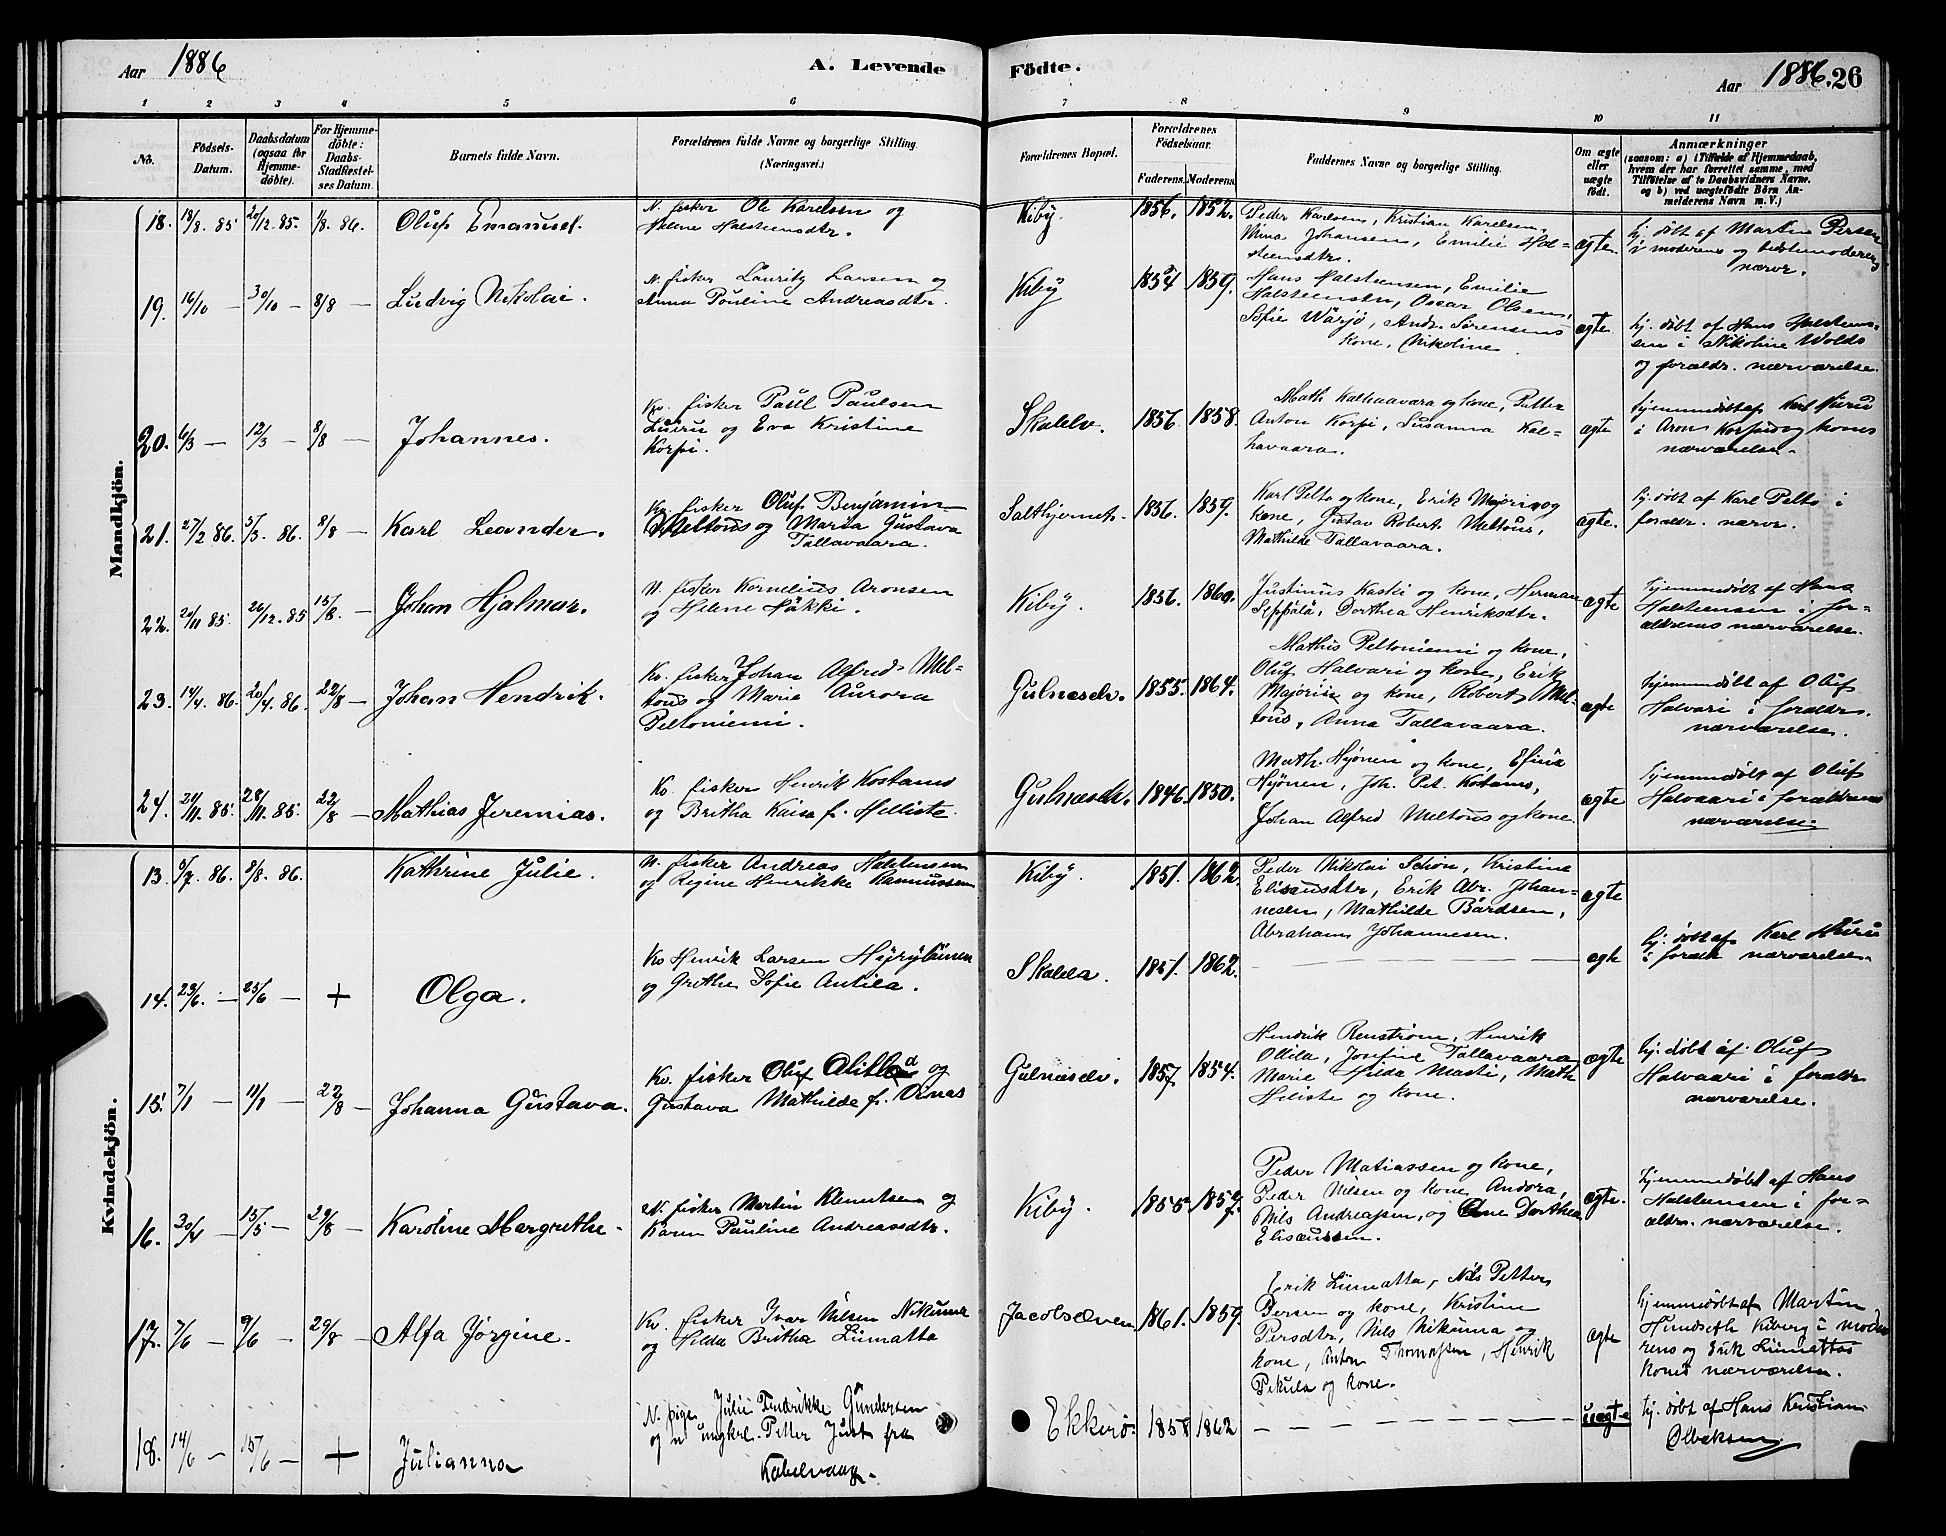 Aar 1886 A. Levende Födte. Aar 1886. 26
1 2 3 4 5 6 7 8 9 10 11
No. Födsels-Datum. Daabsdatum (ogsaa for Hjemme-döbte). For Hjemme-döbte: Daabs-Stadfæstel-ses Datum. Barnets fulde Navn. Forældrenes fulde Navne og borgerlige Stilling. (Næringsvei.) Forældrenes Bopæl. Forældrenes Födselsaar. Faderens. Moderens. Faddernes Navne og borgerlige Stilling. Om ægte eller uægte födt. Anmærkninger (saasom: a) i Tilfælde af Hjemmedaab, hvem der har forrettet samme, med Tilföielse af to Daabsvidners Navne, og b) ved uægtefödte Börn An-melderens Navn m. V.)
Mandkjön.
18. 18/8. 85. 20/12. 85. 1/8. 86. Oluf Emanuel. N. fisker Ole Karelsen og
Helene Halsteensdtr. Kiby. 1856. 1852. Peder Karlsen, Kristian Karelsen,
Nina Johansen, Emilie Hal-
steensdtr. ægte hj. døbt af Martin Persen
i moderens og bedstemoderens
nærv.
19. 16/10 — 30/10 — 8/8 — Ludvig Nikolai. N. fisker Lauritz Larsen og
Anna Pauline Andreasdtr. Kiby 1854 1859. Hans Halsteensen, Emilie
Halsteensdtr, Ossar Olsen,
Sofie Wärjö, Andr. Sørensens
kone, Nikoline. ægte hj. døbt af Hans Halsteen-
sen i Nikoline Wolds
og forældr. nærværelse.
20. 6/3 — 12/3 — 8/8 — Johannes. Kv. fisker Paul Paulsen
og Eva Kristine
Korpi. Skallelv. 1856. 1858. Math Kalhavaara og kone, Petter
Anton Korpi, Susanna Kal-
havaara. ægte hjemmedøbt af Karl
i Aron Korpis og kones
nærværelse.
21. 27/2 86. 5/3. 86. 8/8 — Karl Leander. Kv. fisker Oluf Benjamin
Meltous og Maria Gustava
Tallavaara. Salthjernet. 1856. 1859. Karl Pelto og kone, Erik Majorin og
kone, Gustav Robert Meltous,
Mathilde Tallavaara. ægte. hj. døbt af Karl Pelto i
forældr. nærv.
22. 20/11 85. 26/12. 85 15/8. — Johan Hjalmar. N. fisker Kornelius Aronsen
og Helene Häkki. Kiby. 1856. 1860. Justinus Kaski og kone, Herman
Seppälä, Dorthea Henriksdtr. ægte hjemmedøbt af Hans
Halsteensen i for-
ældrenes nærværelse.
23. 14/4. 86. 20/4. 86. 22/8 — Johan Hendrik. Kv. fisker Johan Alfred Mel-
tous og Marie Aurora
Peltoniemi. Gulnæselv. 1855. 1864. Mathis Peltoniemi og kone,
Oluf Halvari og kone, Erik
Majorin og kone, Robert Mel-
tous, Anna Tallavaara. ægte hjemmedøbt af Oluf
Halvari i forældr.
nærværelse.
24. 20/11. 85. 28/11. 85. 22/8 — Mathias Jeremias. Kv. fisker Henrik Kostamo
og Britha Kaisa f. Helliste. Gulnæselv. 1846. 1850. Math. Hyönen og kone, Efina
Hyönen, Joh. Pet. Kotams,
Johan Alfred Meltous og kone. ægte hjemmedøbt af Oluf
Halvaari i forældrenes
nærværelse.
Kvindekjön.
13. 5/7. 86. 8/8. 86. Kathrine Julie. N. fisker Andreas Halstensen
og Regine Henrikke Rasmussen Kiby. 1851. 1862. Peder Nikolai Schøn, Kristine
Elisæusdtr, Erik Abr. Johan-
nesen, Mathilde Bårdsen,
Abraham Johannesen. ægte
14. 23/6. — 25/6 — + Olga. Kv Henrik Larsen
og Grethe Sofie Antila. Skallelv. 1851. 1862. — ægte hj. døbt af Karl
i forældr nærværelse.
15. 7/1 — 11/1 — 22/8 — Johanna Gustava. Kv. fisker Oluf og
Gustava Mathilde f. Oinas Gulnæselv. 1857. 1854. Hendrik Renström, Henrik
Ollila, Josefine Tallavaara
Marie Hilda Masti, Math
Heliste og kone. ægte hj. døbt af Oluf
Halvaari i forældr
nærværelse.
16. 30/4 — 15/5 — 29/8 — Karoline Margrethe. N. fisker Martin Klemetsen og
Karen Pauline Andreasdtr. Kiby. 1855. 1857. Peder Matiassen og kone,
Peder Nilsen og kone Andora,
Nils Andreassen, og Ane Dorthea
Elisæussen. ægte. hjemmedøbt af Hans
Halsteensen i for-
ældr. nærværelse.
17. 7/6 — 9/6 — 29/8 — Alfa Jörgine. Kv. fisker Ivar Nilsen Nikuma
og Hilda Britha Liimatta Jacobselven 1861. 1859. Erik Liimatta, Nils Petter
Persen og kone, Kristine
Persdtr, Nils Nikuma og
kone, Anton Thomassen, Henrik
Pekula og kone. ægte hjemmedøbt af Martin
Hundseth Kiberg i mode
rens og Erik Liimattas
kones nærværelse.
18. 14/6 — 15/6 — + Julianna N. pige Julie Fredrikke Gundersen
og n ungkrl. Petter Just fra
Kabelvaag. Ekkerö. 1858 1862 — uægte hj. døbt af Hans Kristian
Olbeksen